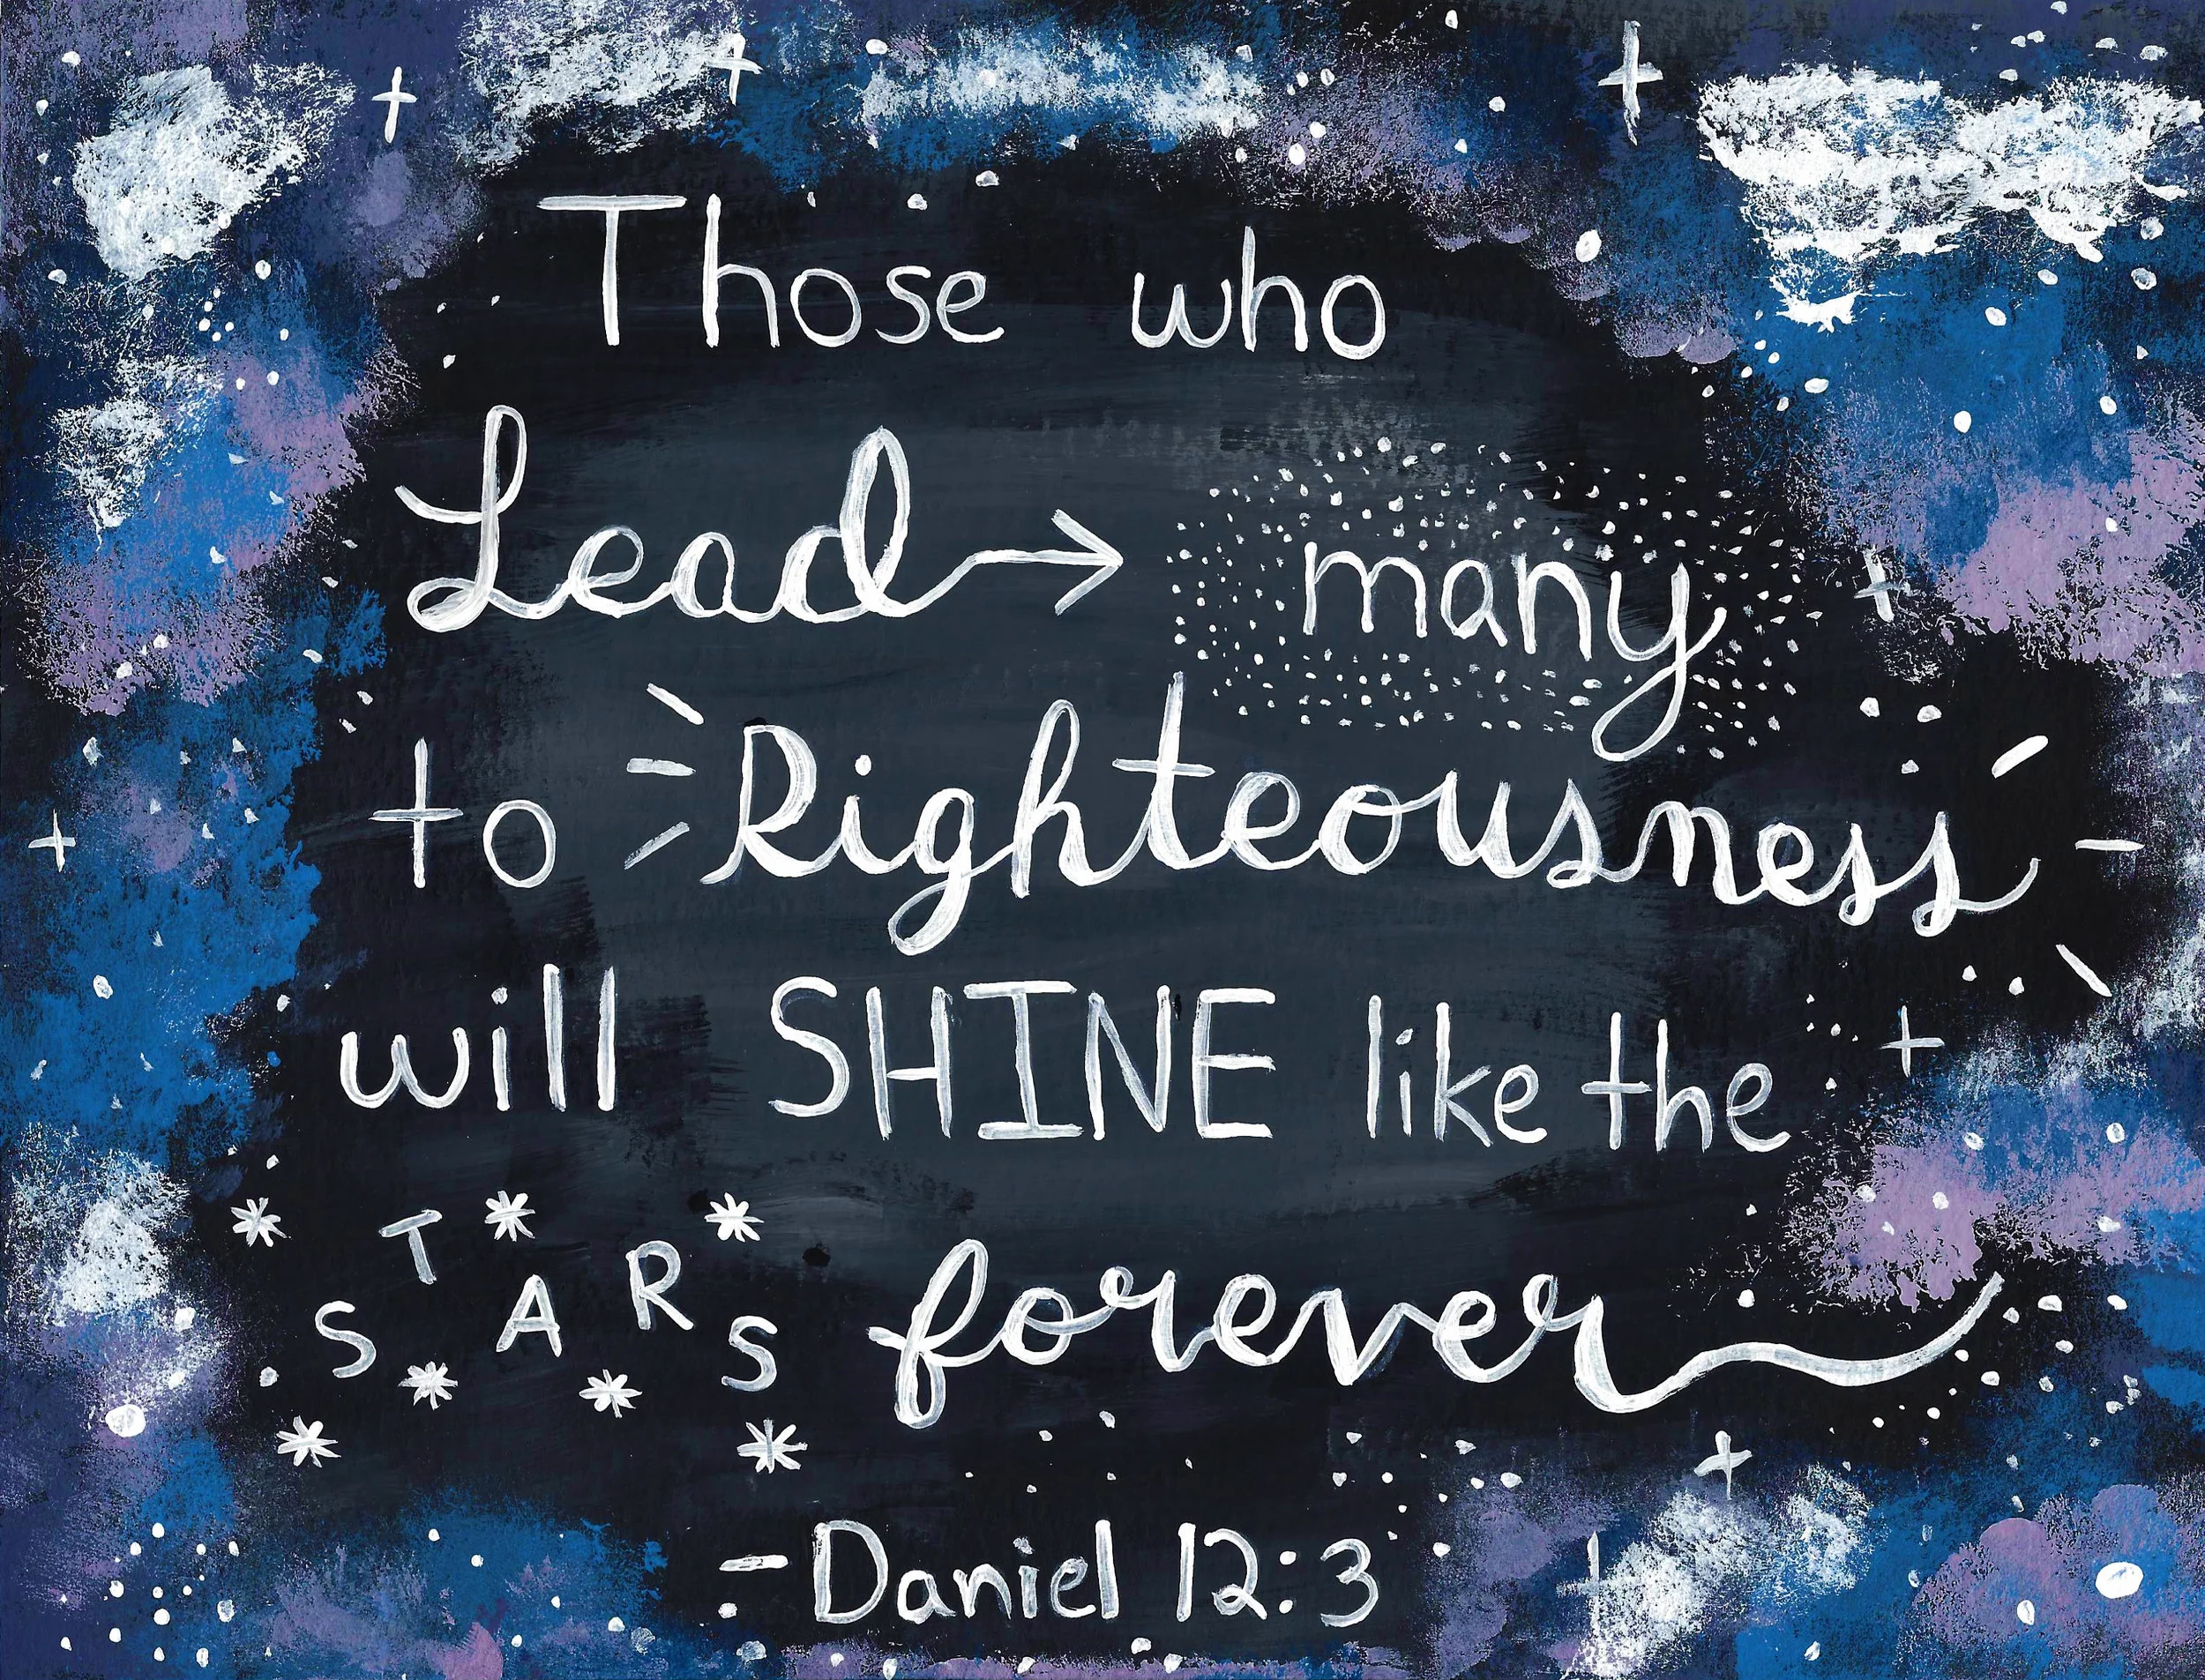 Those who
Lead many
to Righteousness
will SHINE like the
STARS forever
-Daniel 12:3